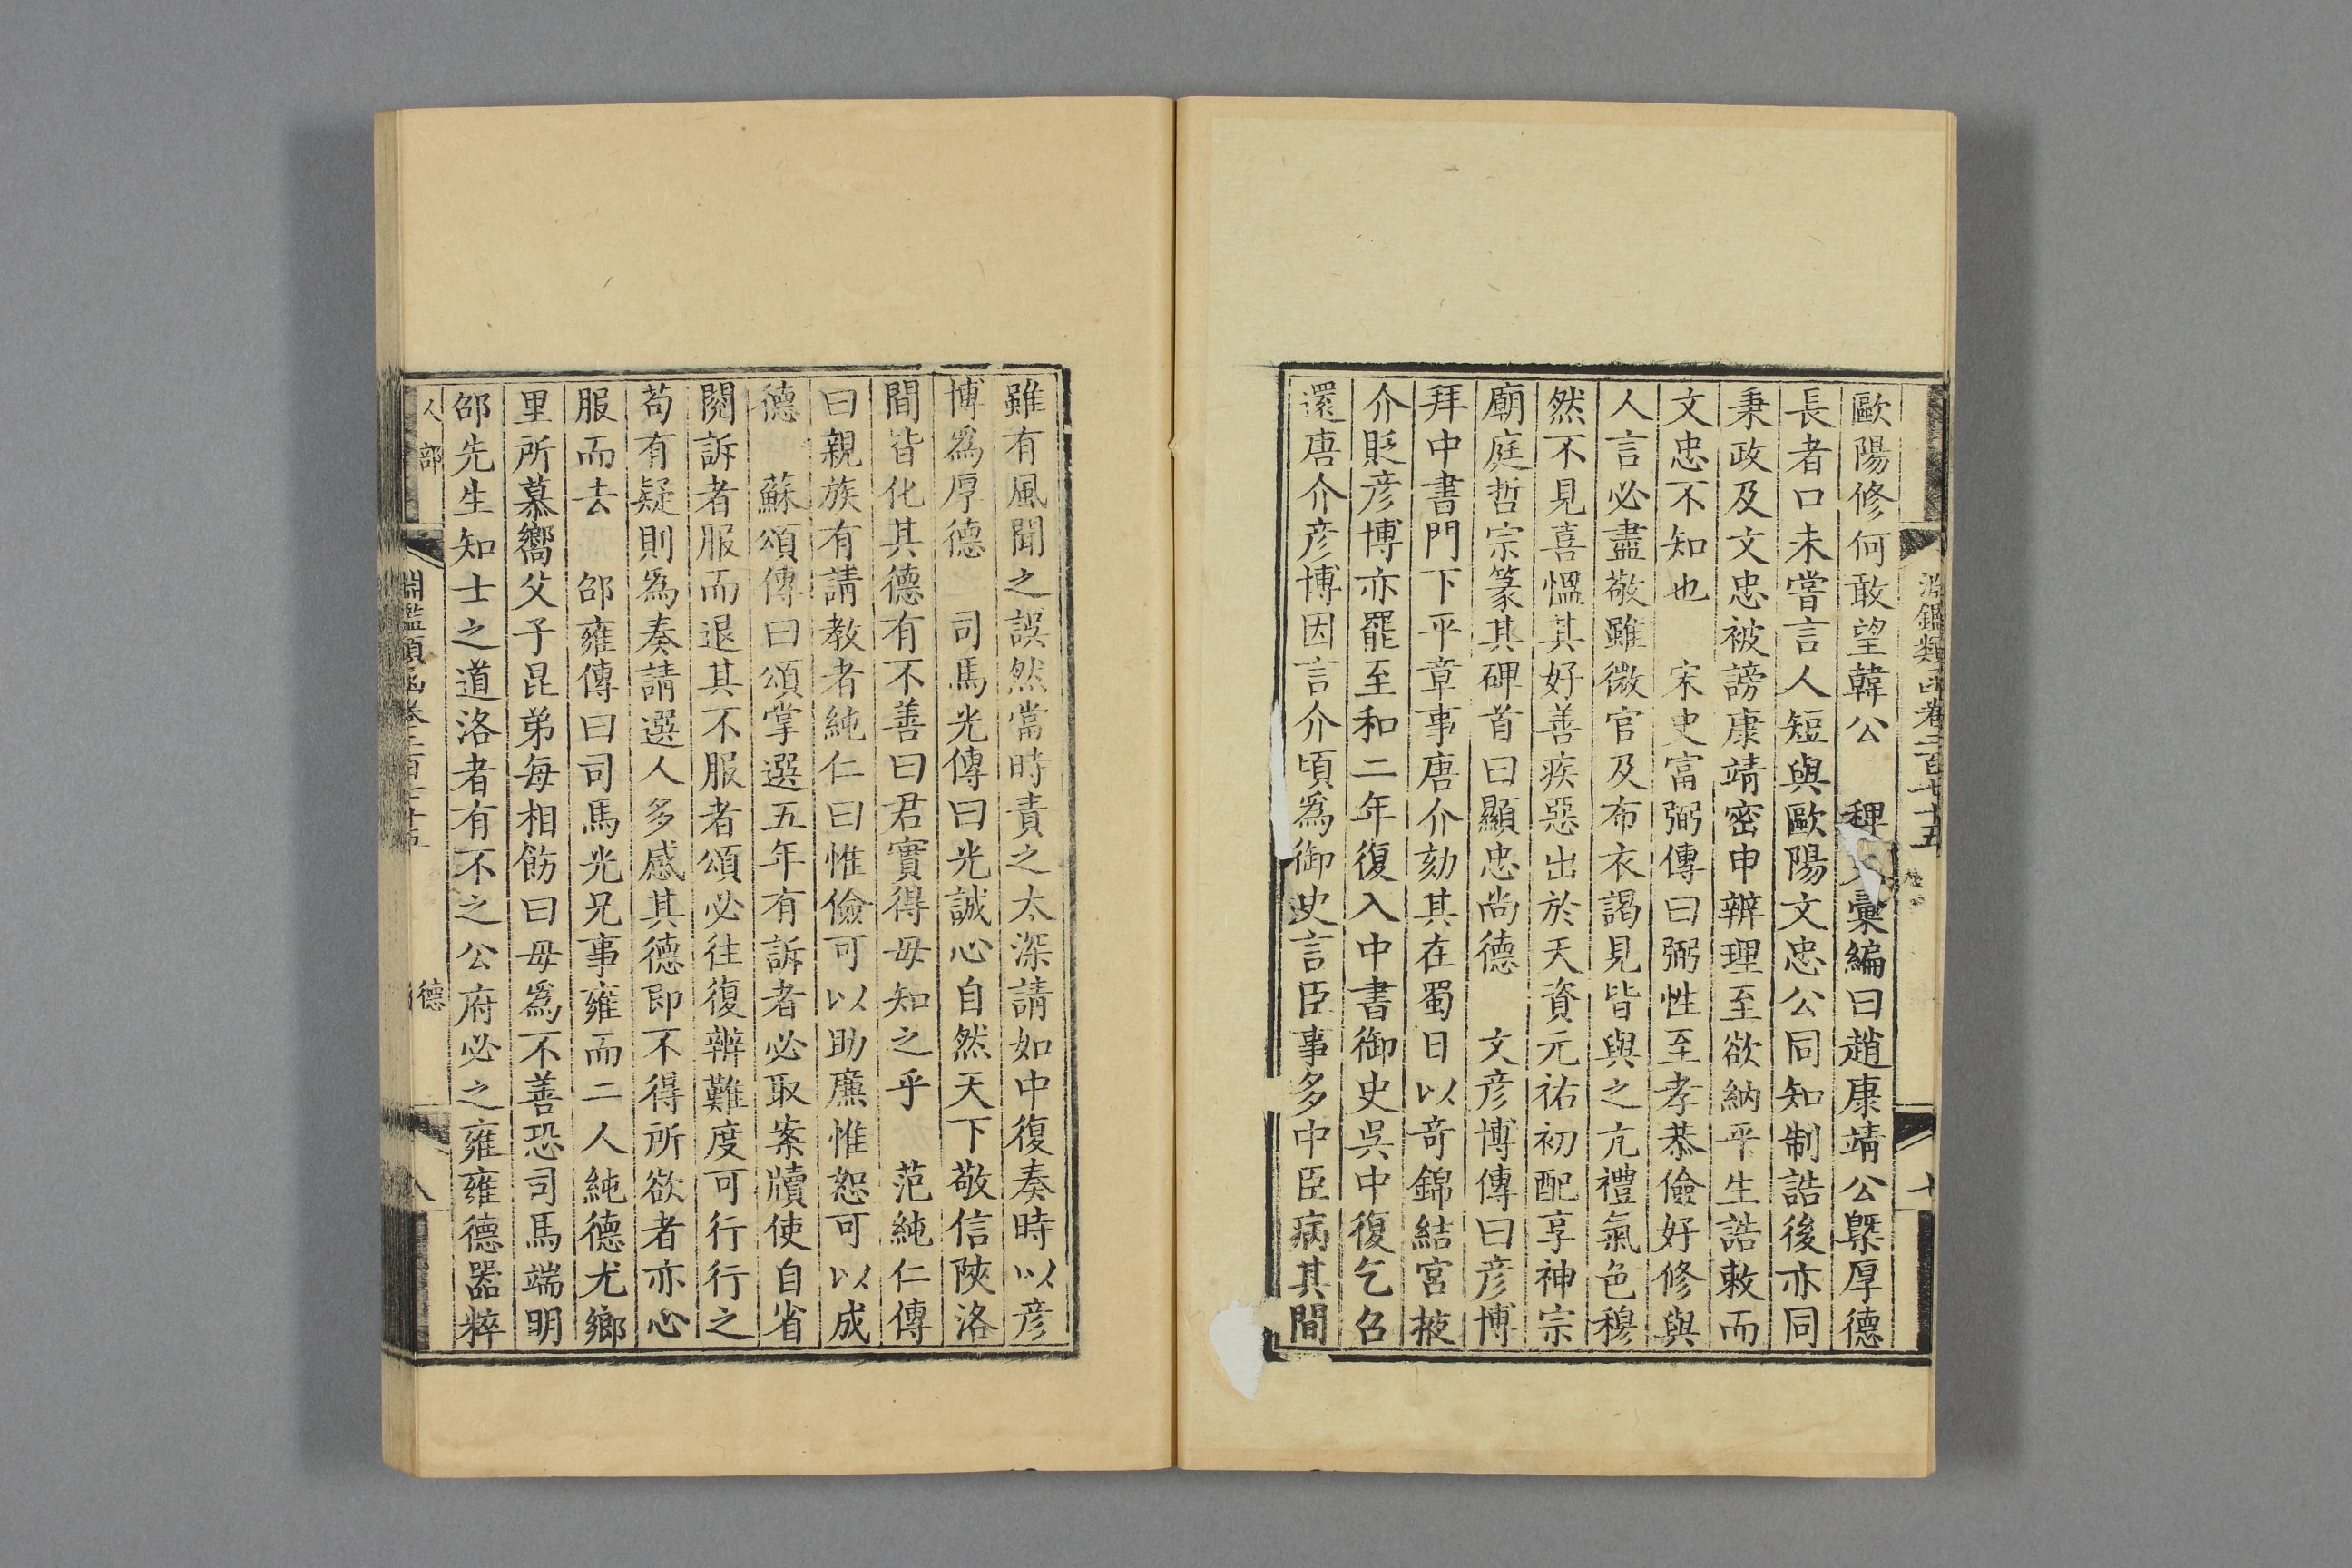 淵鑑類函卷二百七十五
歐陽修何敢望韓公 稗史彙編曰趙康靖公槩厚德
長者口未嘗言人短與歐陽文忠公同知制誥後亦同
秉政及文忠被謗康靖密申辨理至欲納平生誥敕而
文忠不知也 宋史富弼傳曰弼性至孝恭儉好修與
人言必盡敬雖微官及布衣謁見皆與之亢禮氣色穆
然不見喜慍其好善疾惡出於天資元祐初配享神宗
廟庭哲宗篆其碑首曰顯忠尚德 文彥博傳曰彥博
拜中書門下平章事唐介劾其在蜀日以奇錦結宮掖
介貶彥博亦罷至和二年復入中書御史吳中復乞召
還唐介彥博因言介頃爲御史言臣事多中臣病其間
雖有風聞之誤然當時責之太深請如中復奏時以彥
博爲厚德 司馬光傳曰光誠心自然天下敬信陝洛
間皆化其德有不善曰君實得毋知之乎 范純仁傳
曰親族有請教者純仁曰惟儉可以助廉惟恕可以成
德 蘇頌傳曰頌掌選五年有訴者必取案牘使自省
閱訴者服而退其不服者頌必往復辨難度可行行之
苟有疑則爲奏請選人多感其德即不得所欲者亦心
服而去 邵雍傳曰司馬光兄事雍而二人純德尤鄉
里所慕嚮父子昆弟每相飭曰毋爲不善恐司馬端明
邵先生知士之道洛者有不之公府必之雍雍德器粹
人部
淵鑑類函卷二百七十五
德